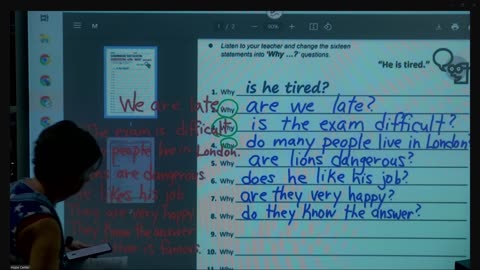 1 / 2
60%
Listen to your teacher and change the sixteen
statements into 'Why ...?' questions.
"He is tired."
1. Why is he tired?
2. Why are we late?
3. Why is the exam difficult?
4. Why do many people live in London?
5. Why are lions dangerous?
6. Why does he like his job?
7. Why are they very happy?
8. Why do they know the answer?
9. Why
10. Why
11. Why
We are late
The exam is difficult
people live in London.
are dangerous
likes his job
They are very happy
They know the answer
is famous